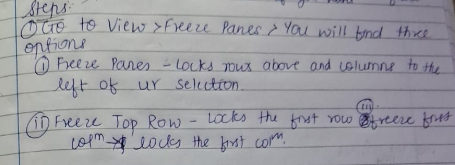 Steps:
① Go to View > Freeze Panes > You will find three
options
① Freeze Panes - Locks rows above and columns to the
left of ur selection.
(ii) Freeze Top Row - Locks the first row (iii) freeze first
colmn → locks the first colm.